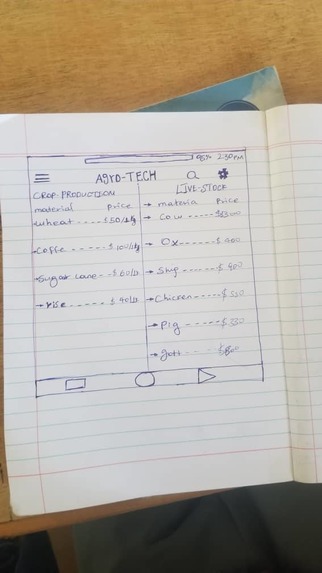 95% 2:30PM
Agro-TECH
CROP PRODUCTION
material Price
wheat ---- $50/kg
Coffe ------ $100/kg
Sugar cane -- $60/kg
→ rise ------ $40/kg
LIVE-STOCK
→ materia Price
→ Cow ------ $3300
→ Ox ------ $
→ ------ $400
→ Chicken ----- $550
→ Pig ------ $350
→ ------ $